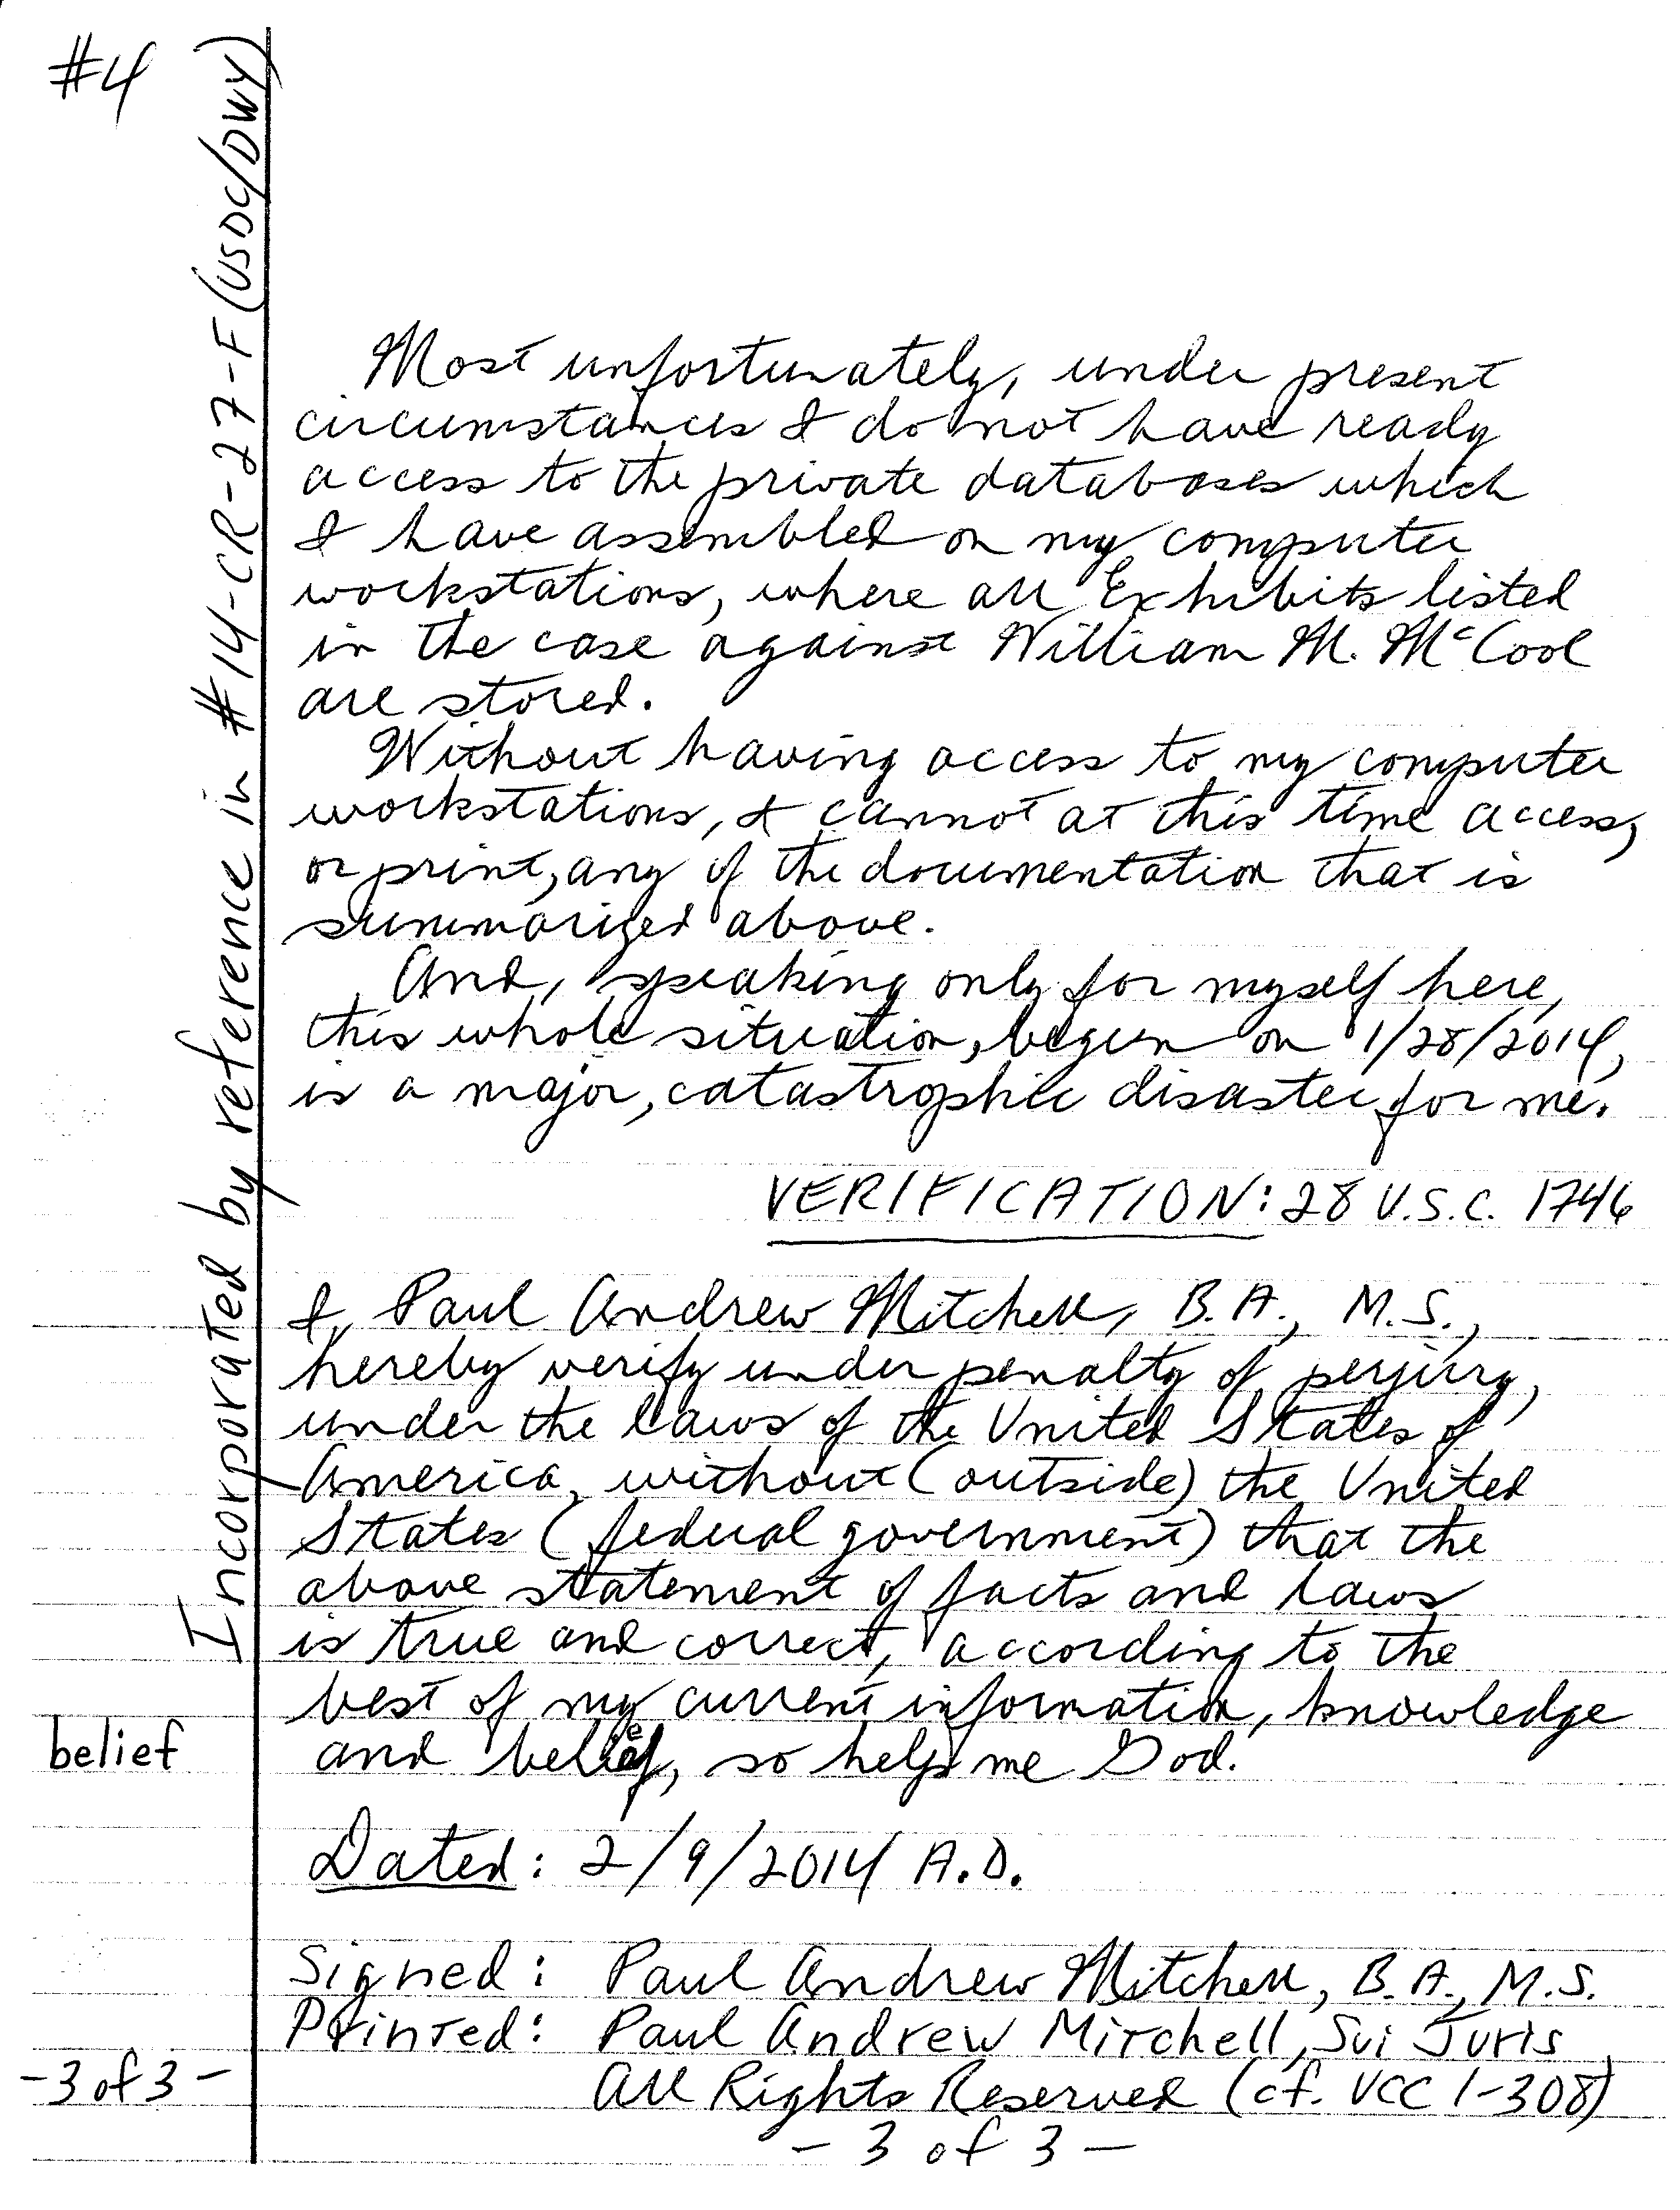 #4
Incorporated by reference in #14-CR-27-F (USDC/DWY)
Most unfortunately, under present
circumstances I do not have ready
access to the private databases which
I have assembled on my computer
workstations, where all Exhibits listed
in the case against William M. McCool
are stored.
Without having access to my computer
workstations, I cannot at this time access,
or print, any of the documentation that is
summarized above.
And, speaking only for myself here,
this whole situation, begun on 1/28/2014,
is a major, catastrophic disaster for me.
VERIFICATION: 28 U.S.C. 1746
I, Paul Andrew Mitchell, B.A., M.S.,
hereby verify under penalty of perjury,
under the laws of the United States of
America, without (outside) the United
States (federal government) that the
above statement of facts and laws
is true and correct, according to the
best of my current information, knowledge
belief and belief, so help me God.
Dated: 2/9/2014 A.D.
Signed: Paul Andrew Mitchell, B.A., M.S.
Printed: Paul Andrew Mitchell, Sui Juris
-3 of 3- All Rights Reserved (cf. UCC 1-308)
- 3 of 3 -